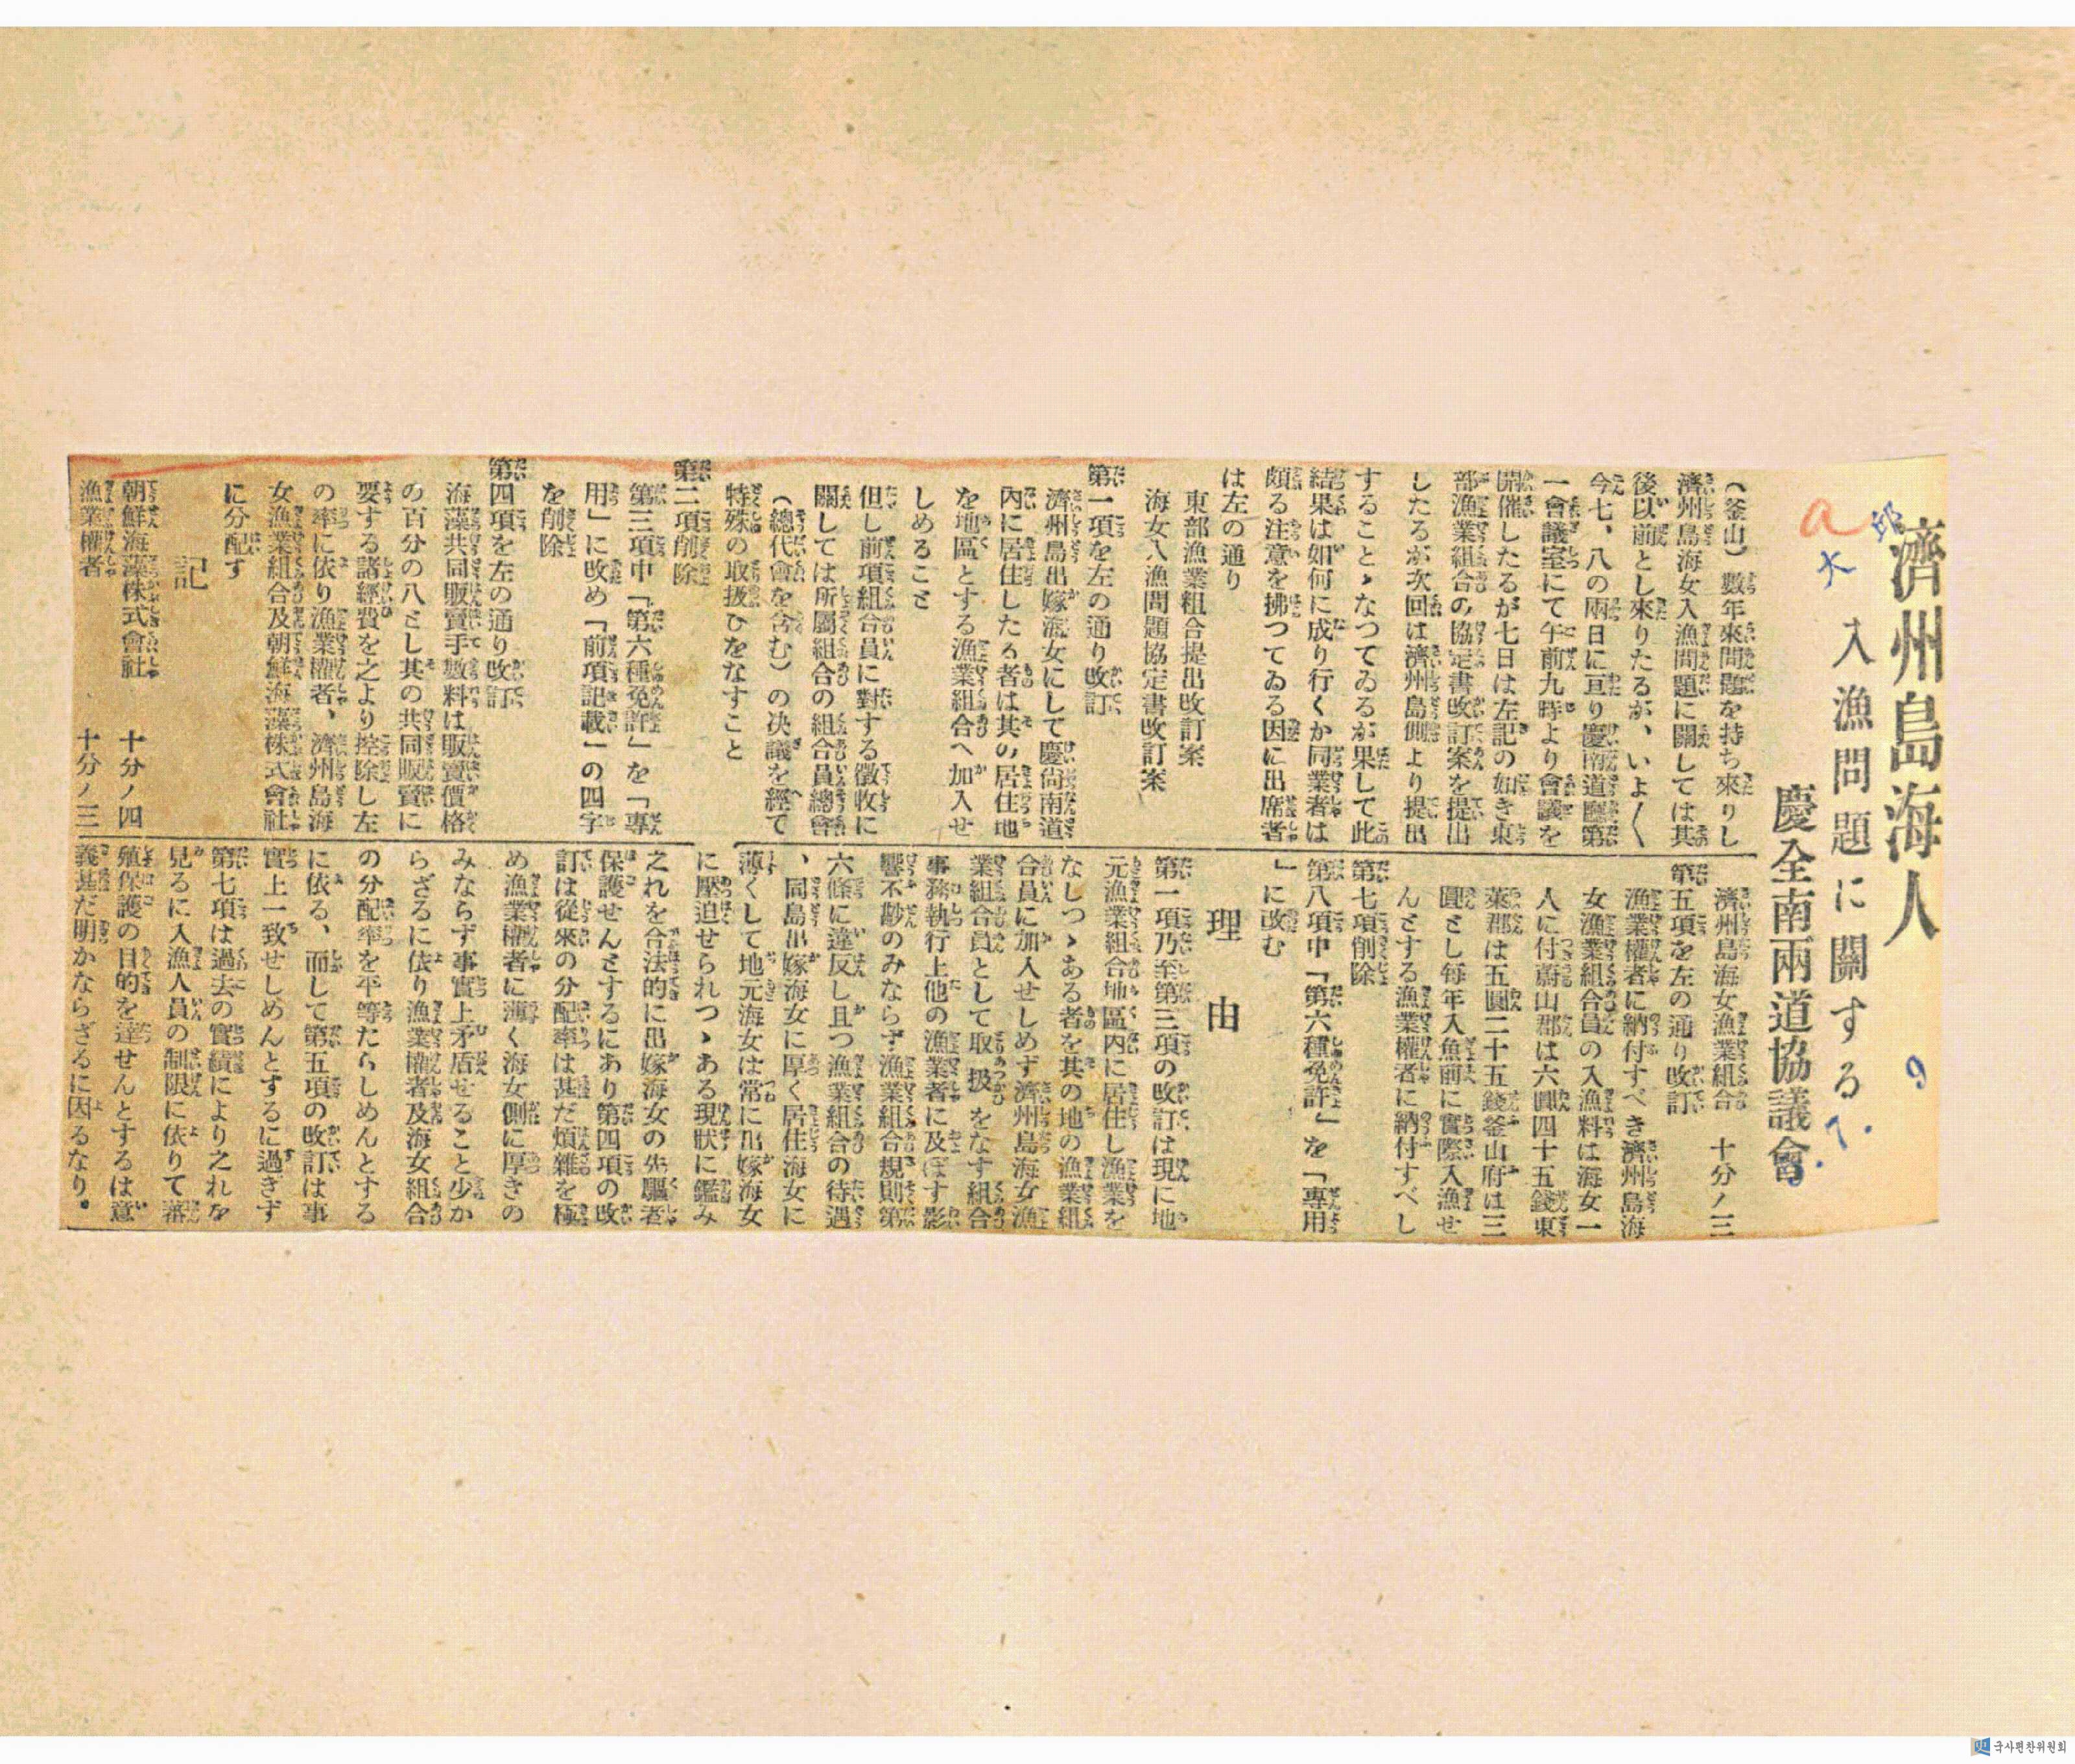 濟州島海人
入漁問題に關する
慶全南兩道協議會
(釜山)數年來問題を持ち來りし
濟州島海女入漁問題に關しては其
後以前とし來りたるが、いよ〱
今七、八の兩日に亘り慶南道廳第
一會議室にて午前九時より會議を
開催したるが七日は左記の如き東
部漁業組合の協定書改訂案を提出
したるが次回は濟州島側より提出
することゝなつてゐるが果して此
結果は如何に成り行くか同業者は
頗る注意を拂つてゐる因に出席者
は左の通り
東部漁業組合提出改訂案
海女入漁問題協定書改訂案
第一項を左の通り改訂
濟州島出嫁海女にして慶尙南道
內に居住したる者は其の居住地
を地區とする漁業組合へ加入せ
しめること
但し前項組合員に對する徵收に
關しては所屬組合の組合員總會
(總代會を含む)の決議を經て
特殊の取扱ひをなすこと
第二項削除
第三項中「第六種免許」を「專
用」に改め「前項記載」の四字
を削除
第四項を左の通り改訂
海藻共同販賣手數料は販賣價格
の百分の八とし其の共同販賣に
要する諸經費を之より控除し左
の率に依り漁業權者、濟州島海
女漁業組合及朝鮮海藻株式會社
に分配す
記
朝鮮海藻株式會社 十分ノ四
漁業權者 十分ノ三
濟州島海女漁業組合 十分ノ三
第五項を左の通り改訂
漁業權者に納付すべき濟州島海
女漁業組合員の入漁料は海女一
人に付蔚山郡は六圓四十五錢東
萊郡は五圓二十五錢釜山府は三
圓とし每年入魚前に實際入漁せ
んとする漁業權者に納付すべし
第七項削除
第八項中「第六種免許」を「專用
」に改む
理由
第一項乃至第三項の改訂は現に地
元漁業組合地區內に居住し漁業を
なしつゝある者を其の地の漁業組
合員に加入せしめず濟州島海女漁
業組合員として取扱をなす組合
事務執行上他の漁業者に及ぼす影
響不尠のみならず漁業組合規則第
六條に違反し且つ漁業組合の待遇
、同島出嫁海女に厚く居住海女に
薄くして地元海女は常に出嫁海女
に壓迫せられつゝある現狀に鑑み
之れを合法的に出嫁海女の先驅者
保護せんとするにあり第四項の改
訂は從來の分配率は甚だ煩雜を極
め漁業權者に薄く海女側に厚きの
みならず事實上矛盾せること少か
らざるに依り漁業權者及海女組合
の分配率を平等たらしめんとする
に依る、而して第五項の改訂は事
實上一致せしめんとするに過ぎず
第七項は過去の實績により之れを
見るに入漁人員の制限に依りて蕃
殖保護の目的を達せんとするは意
義甚だ明かならざるに因るなり。
a
水
9
7.
국사편찬위원회